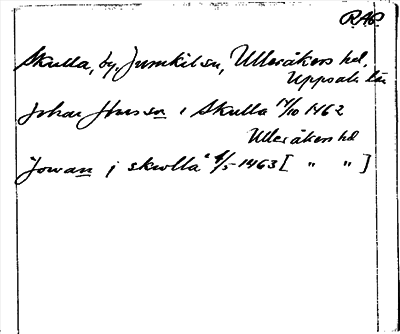 RAP.
Skulla, by, Jumkil sn, Ulleråkers hd,
Uppsala län
Johan Jönsson i Skulla 14/10 1462
Ulleråkers hd
"Jowan j skwlla" 4/5 1463 [ " " ]